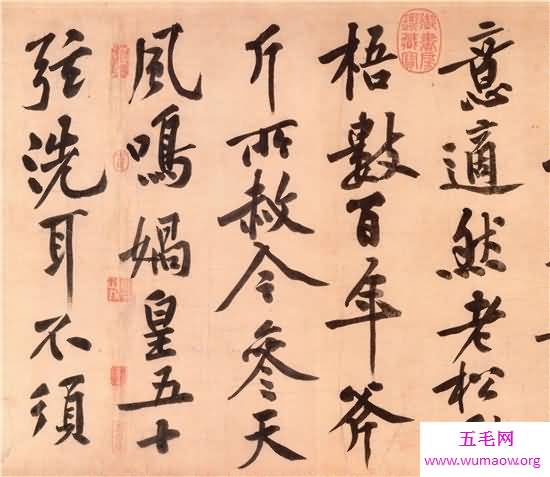 意適然老松
梧數百年斧
斤所赦今參天
風鳴媧皇五十
弦洗耳不須
御書房鑑藏寶
五毛网
www.wumaow.org